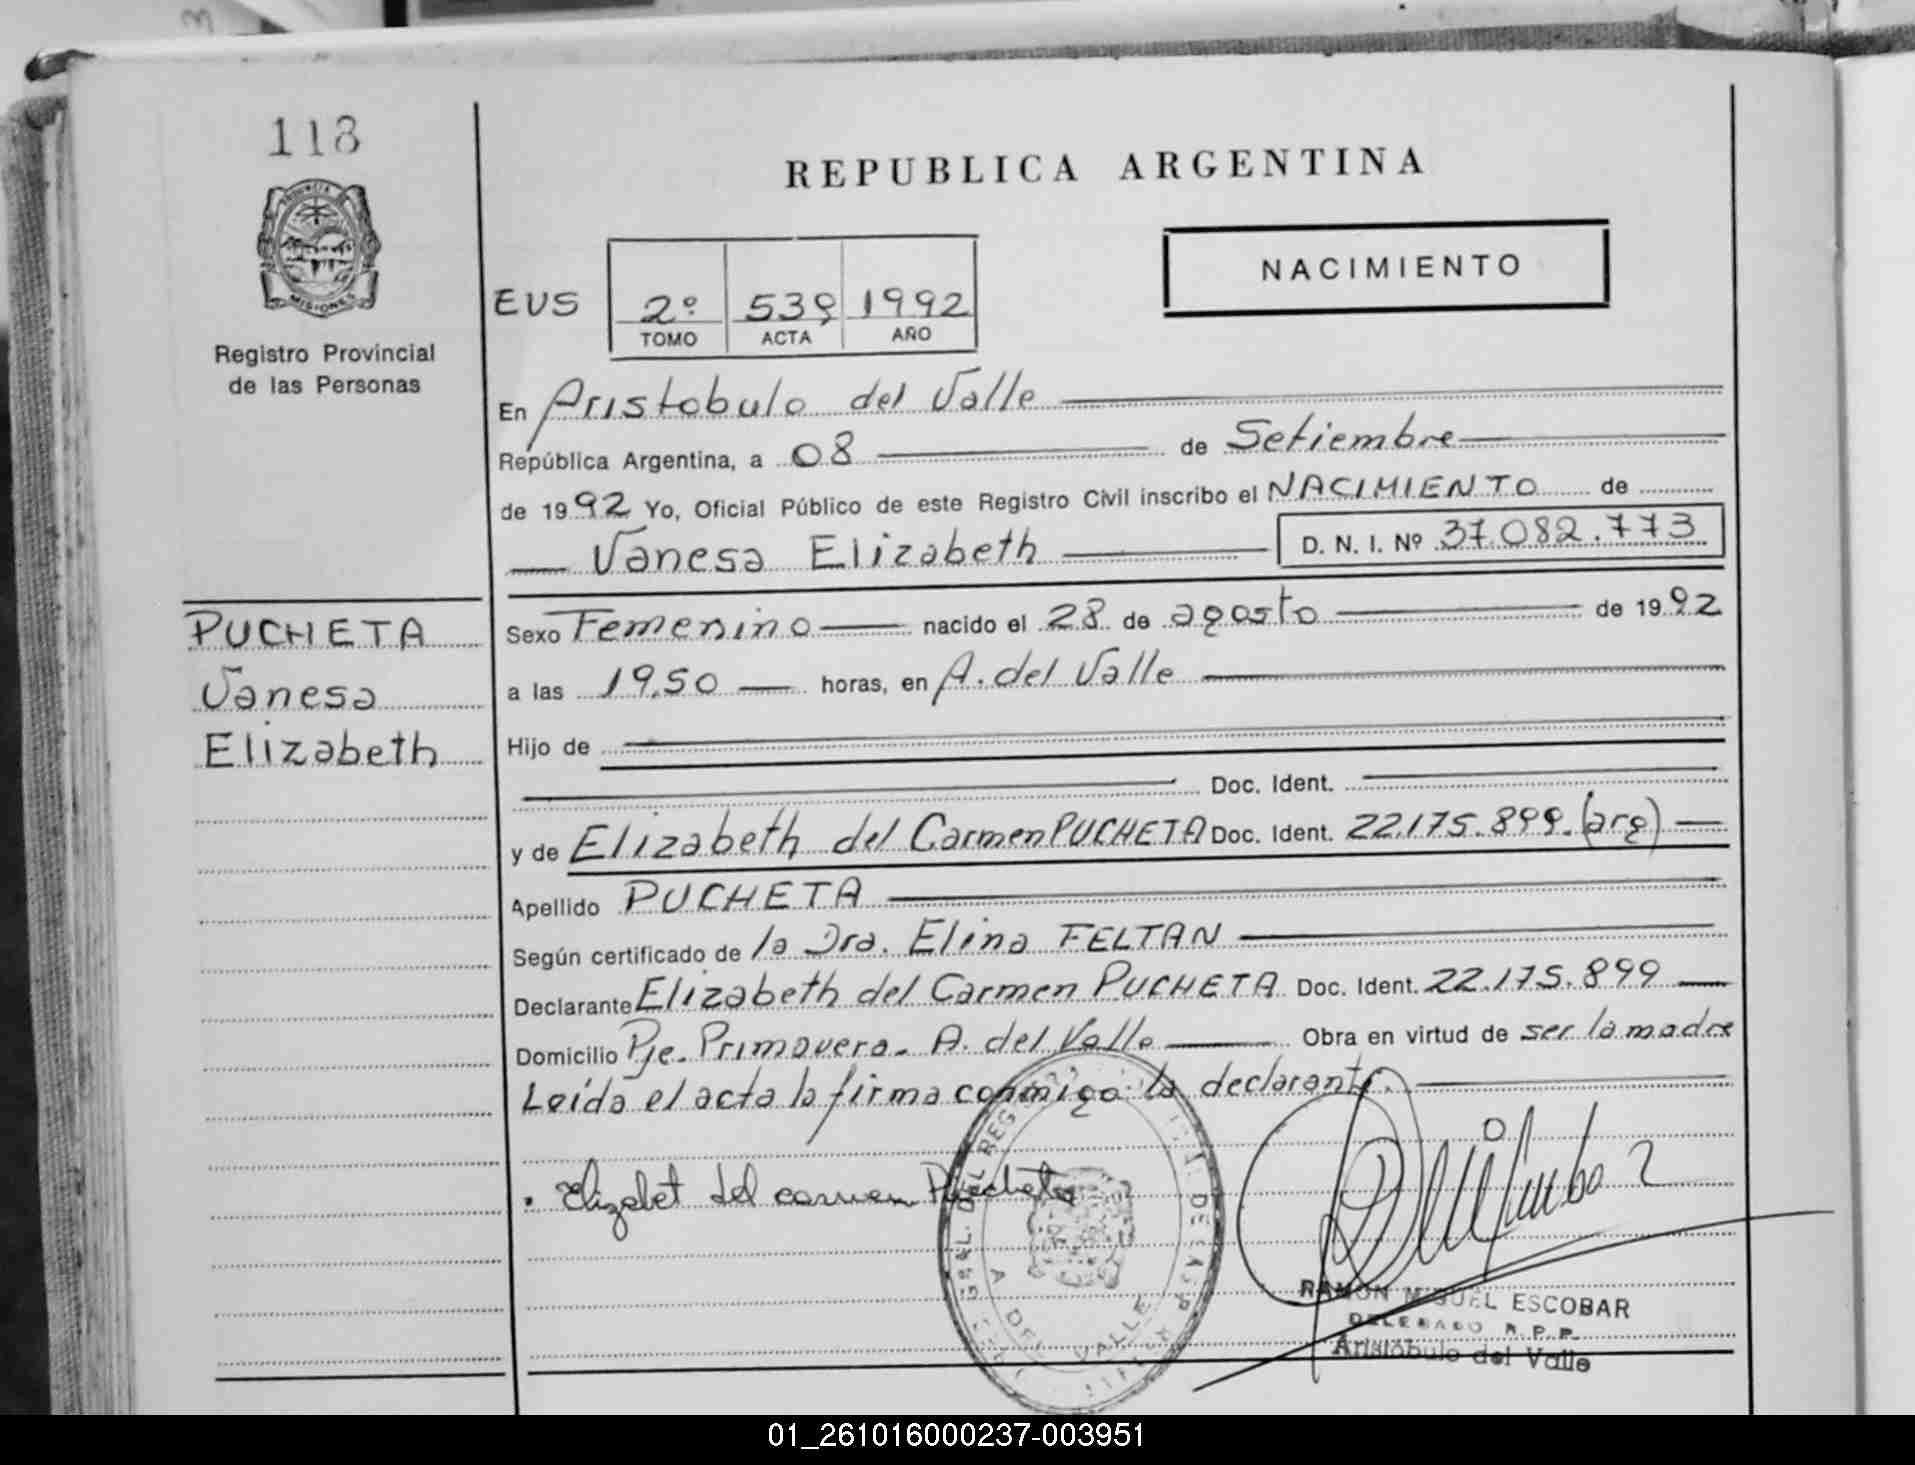 118
PROVINCIA
MISIONES
Registro Provincial
de las Personas
PUCHETA
Vanesa
Elizabeth
REPUBLICA ARGENTINA
NACIMIENTO
EUS 2º 539 1992
TOMO ACTA AÑO
En Aristobulo del Valle
República Argentina, a 08 de Setiembre
de 1992 Yo, Oficial Público de este Registro Civil inscribo el NACIMIENTO de
Vanesa Elizabeth D. N. I. Nº 37.082.773
Sexo Femenino nacido el 28 de agosto de 1992
a las 19,50 horas, en A. del Valle
Hijo de
Doc. Ident.
y de Elizabeth del Carmen PUCHETA Doc. Ident. 22.175.899.(arg)
Apellido PUCHETA
Según certificado de la Dra. Elina FELTAN
Declarante Elizabeth del Carmen PUCHETA Doc. Ident. 22.175.899
Domicilio Pje. Primavera- A. del Valle Obra en virtud de ser la madre
Leída el acta la firma conmigo la declarante.
Elizabet del carmen Pucheta
GRAL. DEL REG
A DEL VALLE
RAMON MIGUEL ESCOBAR
DELEGADO R.P.P.
Aristóbulo del Valle
01_261016000237-003951